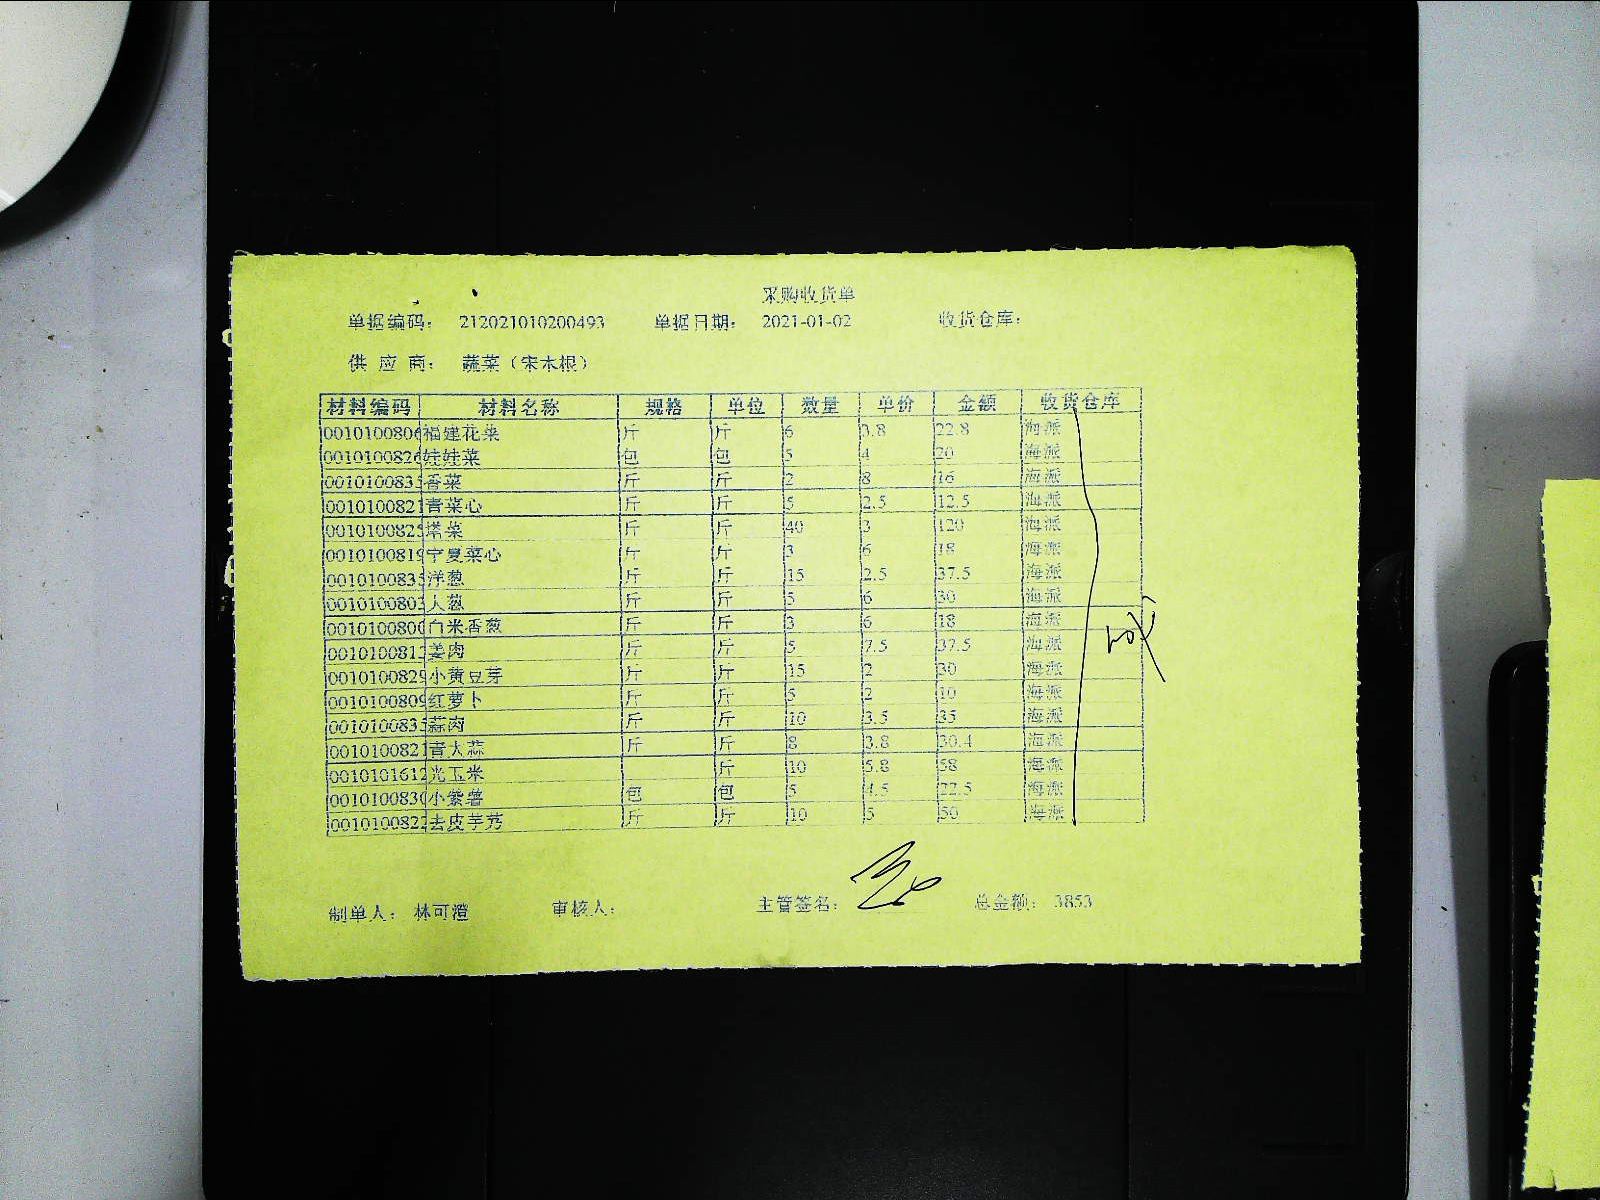 采购收货单
单据编码： 212021010200493 单据日期： 2021-01-02 收货仓库：
供 应 商： 蔬菜（宋木根）
材料编码 材料名称 规格 单位 数量 单价 金额 收货仓库
0010100806 福建花菜 斤 斤 6 3.8 22.8 海派
0010100826 娃娃菜 包 包 5 4 20 海派
001010083 香菜 斤 斤 2 8 16 海派
0010100821 青菜心 斤 斤 5 2.5 12.5 海派
001010082 塔菜 斤 斤 40 3 120 海派
0010100819 宁夏菜心 斤 斤 3 6 18 海派
001010083 洋葱 斤 斤 15 2.5 37.5 海派
001010080 大葱 斤 斤 5 6 30 海派
0010100800 白米香葱 斤 斤 3 6 18 海派
001010081 姜肉 斤 斤 5 7.5 37.5 海派
0010100829 小黄豆芽 斤 斤 15 2 30 海派
0010100809 红萝卜 斤 斤 5 2 10 海派
001010083 蒜肉 斤 斤 10 3.5 35 海派
0010100821 青大蒜 斤 斤 8 3.8 30.4 海派
001010161 光玉米 斤 10 5.8 58 海派
0010100830 小紫薯 包 包 5 4.5 22.5 海派
001010082 去皮芋艿 斤 斤 10 5 50 海派
制单人： 林可澄 审核人： 主管签名： 总金额： 3853